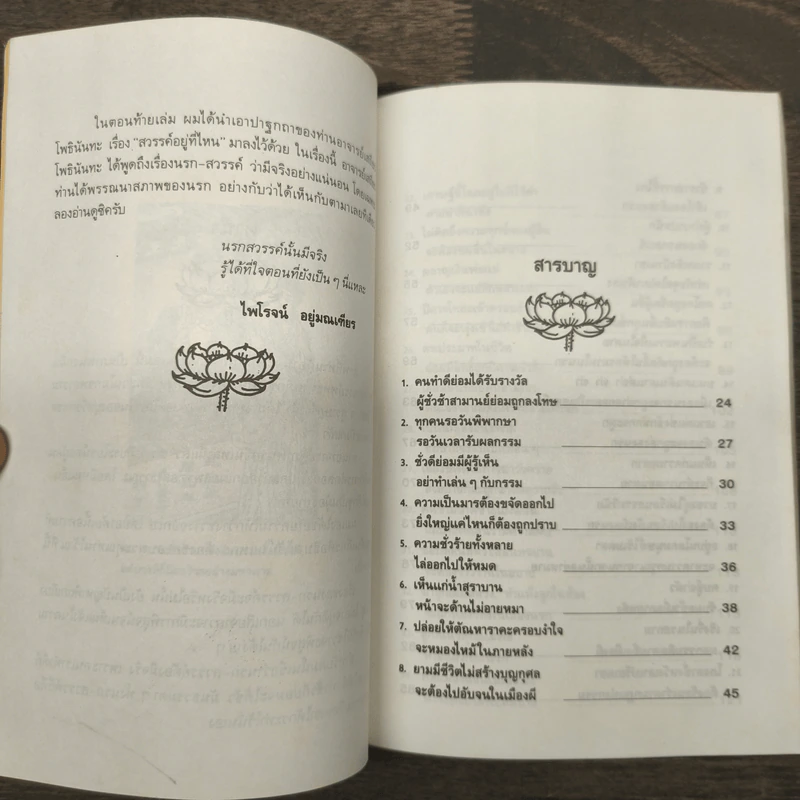 ในตอนท้ายเล่ม ผมได้นำเอาปาฐกถาของท่านอาจารย์
โพธินันทะ เรื่อง "สวรรค์อยู่ที่ไหน" มาลงไว้ด้วย ในเรื่องนี้
โพธินันทะ ได้พูดถึงเรื่องนรก-สวรรค์ ว่ามีจริงอย่างแน่นอน
ท่านได้พรรณนาสภาพของนรก อย่างกับว่าได้เห็นกับตามาเลย
ลองอ่านดูซิครับ
นรกสวรรค์นั้นมีจริง
รู้ได้ที่ใจตอนที่ยังเป็น ๆ นี่แหละ
ไพโรจน์ อยู่มณเฑียร
สารบาญ
1. คนทำดีย่อมได้รับรางวัล
ผู้ชั่วช้าสามานย์ย่อมถูกลงโทษ 24
2. ทุกคนรอวันพิพากษา
รอวันเวลารับผลกรรม 27
3. ชั่วดีย่อมมีผู้รู้เห็น
อย่าทำเล่น ๆ กับกรรม 30
4. ความเป็นมารต้องขจัดออกไป
ยิ่งใหญ่แค่ไหนก็ต้องถูกปราบ 33
5. ความชั่วร้ายทั้งหลาย
ไล่ออกไปให้หมด 36
6. เห็นแก่น้ำสุราบาน
หน้าจะด้านไม่อายหมา 38
7. ปล่อยให้ตัณหาราคะครอบงำใจ
จะหมองไหม้ในภายหลัง 42
8. ยามมีชีวิตไม่สร้างบุญกุศล
จะต้องไปอับจนในเมืองผี 45